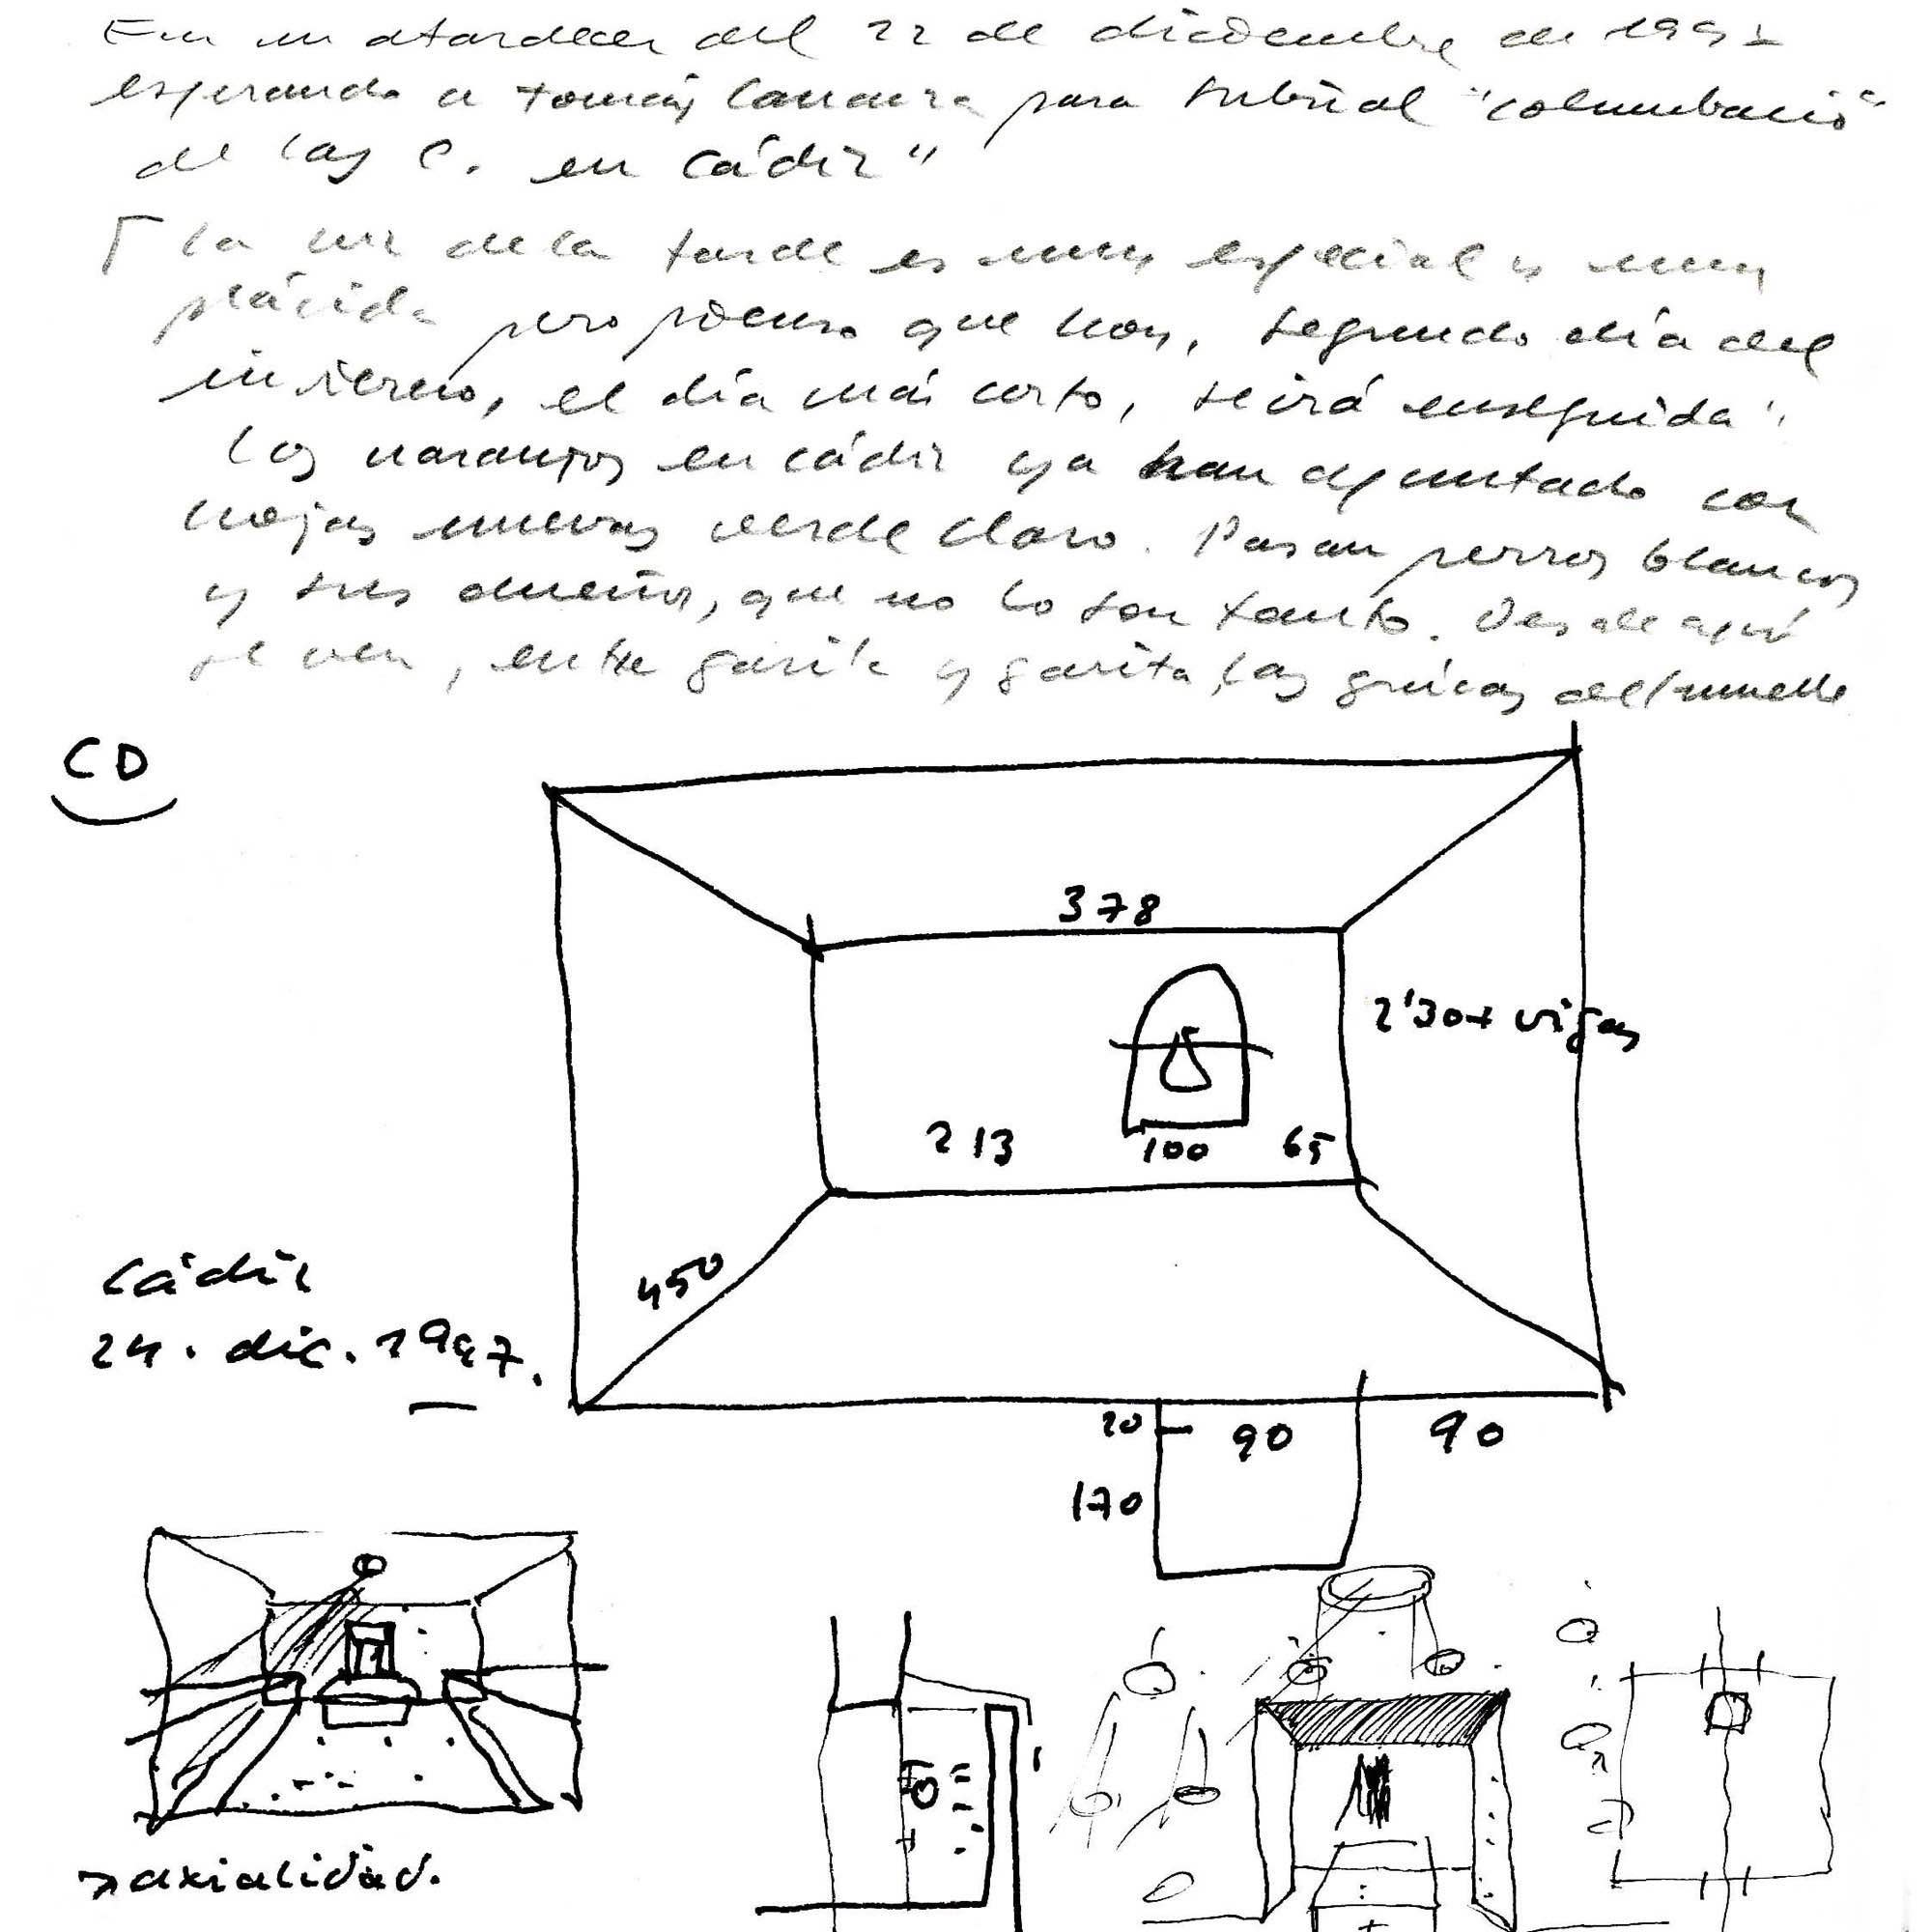 En un atardecer del 22 de diciembre de 199
esperando a tomás para "columbario"
de las C. en Cádiz"
la luz de la tarde es muy especial y muy
plácida pero pienso que hoy, segundo día del
invierno, el día más corto, se irá enseguida.
Los naranjos en cádiz ya han apuntado con
hojas nuevas verde claro. Pasan perros blancos
y sus dueños, que no lo son tanto. Desde aquí
se ven, entre garita y garita, las grúas del muelle
CD
378
2'30+ vigas
213 100 65
450
Cádiz
24. dic. 1997.
20 90 90
170
axialidad.